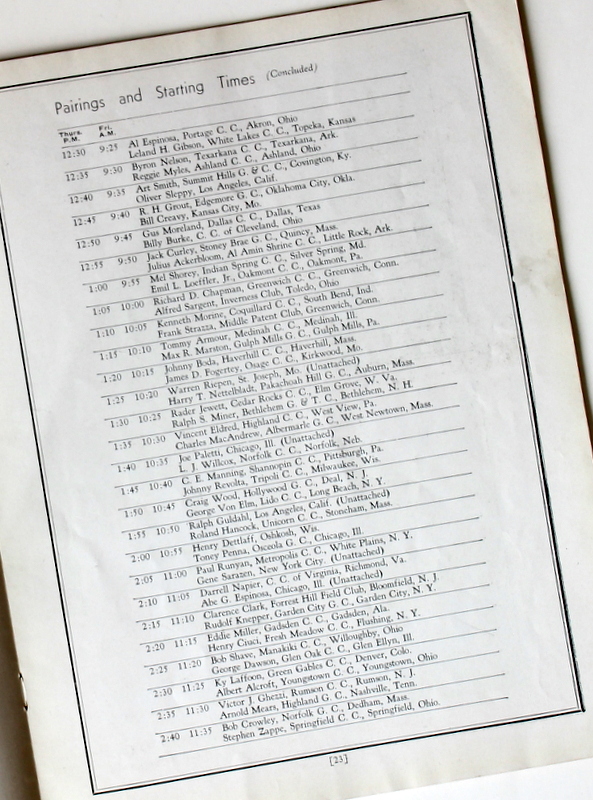 Pairings and Starting Times (Concluded)
Thurs. P.M. Fri. A.M.
12:30 9:25 Al Espinosa, Portage C. C., Akron, Ohio
Leland H. Gibson, White Lakes C. C., Topeka, Kansas
12:35 9:30 Byron Nelson, Texarkana C. C., Texarkana, Ark.
Reggie Myles, Ashland C. C., Ashland, Ohio
12:40 9:35 Art Smith, Summit Hills G. & C. C., Covington, Ky.
Oliver Sleppy, Los Angeles, Calif.
12:45 9:40 R. H. Grout, Edgemore G. C., Oklahoma City, Okla.
Bill Creavy, Kansas City, Mo.
12:50 9:45 Gus Moreland, Dallas C. C., Dallas, Texas
Billy Burke, C. C. of Cleveland, Ohio
12:55 9:50 Jack Curley, Stoney Brae G. C., Quincy, Mass.
Julius Ackerbloom, Al Amin Shrine C. C., Little Rock, Ark.
1:00 9:55 Mel Shorey, Indian Spring C. C., Silver Spring, Md.
Emil L. Loeffler, Jr., Oakmont C. C., Oakmont, Pa.
1:05 10:00 Richard D. Chapman, Greenwich C. C., Greenwich, Conn.
Alfred Sargent, Inverness Club, Toledo, Ohio
1:10 10:05 Kenneth Morine, Coquillard C. C., South Bend, Ind.
Frank Strazza, Middle Patent Club, Greenwich, Conn.
1:15 10:10 Tommy Armour, Medinah C. C., Medinah, Ill.
Max R. Marston, Gulph Mills G. C., Gulph Mills, Pa.
1:20 10:15 Johnny Boda, Haverhill C. C., Haverhill, Mass.
James D. Fogertey, Osage C. C., Kirkwood, Mo.
1:25 10:20 Warren Riepen, St. Joseph, Mo. (Unattached)
Harry T. Nettelbladt, Pakachoah Hill G. C., Auburn, Mass.
1:30 10:25 Rader Jewett, Cedar Rocks C. C., Elm Grove, W. Va.
Ralph S. Miner, Bethlehem G. & T. C., Bethlehem, N. H.
1:35 10:30 Vincent Eldred, Highland C. C., West View, Pa.
Charles MacAndrew, Albermarle G. C., West Newtown, Mass.
1:40 10:35 Joe Paletti, Chicago, Ill. (Unattached)
L. J. Willcox, Norfolk C. C., Norfolk, Neb.
1:45 10:40 C. E. Manning, Shannopin C. C., Pittsburgh, Pa.
Johnny Revolta, Tripoli C. C., Milwaukee, Wis.
1:50 10:45 Craig Wood, Hollywood G. C., Deal, N. J.
George Von Elm, Lido C. C., Long Beach, N. Y.
1:55 10:50 Ralph Guldahl, Los Angeles, Calif. (Unattached)
Roland Hancock, Unicorn C. C., Stoneham, Mass.
2:00 10:55 Henry Dettlaff, Oshkosh, Wis.
Toney Penna, Osceola G. C., Chicago, Ill.
2:05 11:00 Paul Runyan, Metropolis C. C., White Plains, N. Y.
Gene Sarazen, New York City. (Unattached)
2:10 11:05 Darrell Napier, C. C. of Virginia, Richmond, Va.
Abe G. Espinosa, Chicago, Ill. (Unattached)
2:15 11:10 Clarence Clark, Forrest Hill Field Club, Bloomfield, N. J.
Rudolf Knepper, Garden City G. C., Garden City, N. Y.
2:20 11:15 Eddie Miller, Gadsden C. C., Gadsden, Ala.
Henry Ciuci, Fresh Meadow C. C., Flushing, N. Y.
2:25 11:20 Bob Shave, Manakiki C. C., Willoughby, Ohio
George Dawson, Glen Oak C. C., Glen Ellyn, Ill.
2:30 11:25 Ky Laffoon, Green Gables C. C., Denver, Colo.
Albert Alcroft, Youngstown C. C., Youngstown, Ohio
2:35 11:30 Victor J. Ghezzi, Rumson C. C., Rumson, N. J.
Arnold Mears, Highland G. C., Nashville, Tenn.
2:40 11:35 Bob Crowley, Norfolk G. C., Dedham, Mass.
Stephen Zappe, Springfield C. C., Springfield, Ohio.
[23]